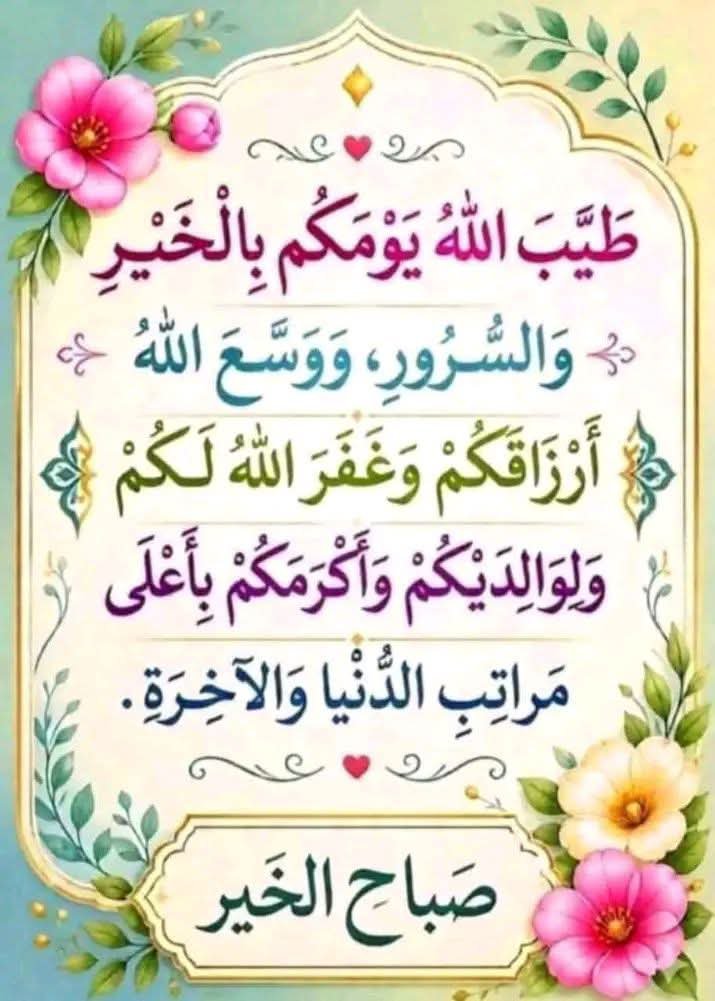 طَيَّبَ اللهُ يَوْمَكُم بِالْخَيْرِ
وَالسُّرُورِ، وَوَسَّعَ اللهُ
أَرْزَاقَكُمْ وَغَفَرَ اللهُ لَكُمْ
وَلِوَالِدَيْكُمْ وَأَكْرَمَكُمْ بِأَعْلَى
مَراتِبِ الدُّنْيا وَالآخِرَةِ.
صَباحِ الخَير